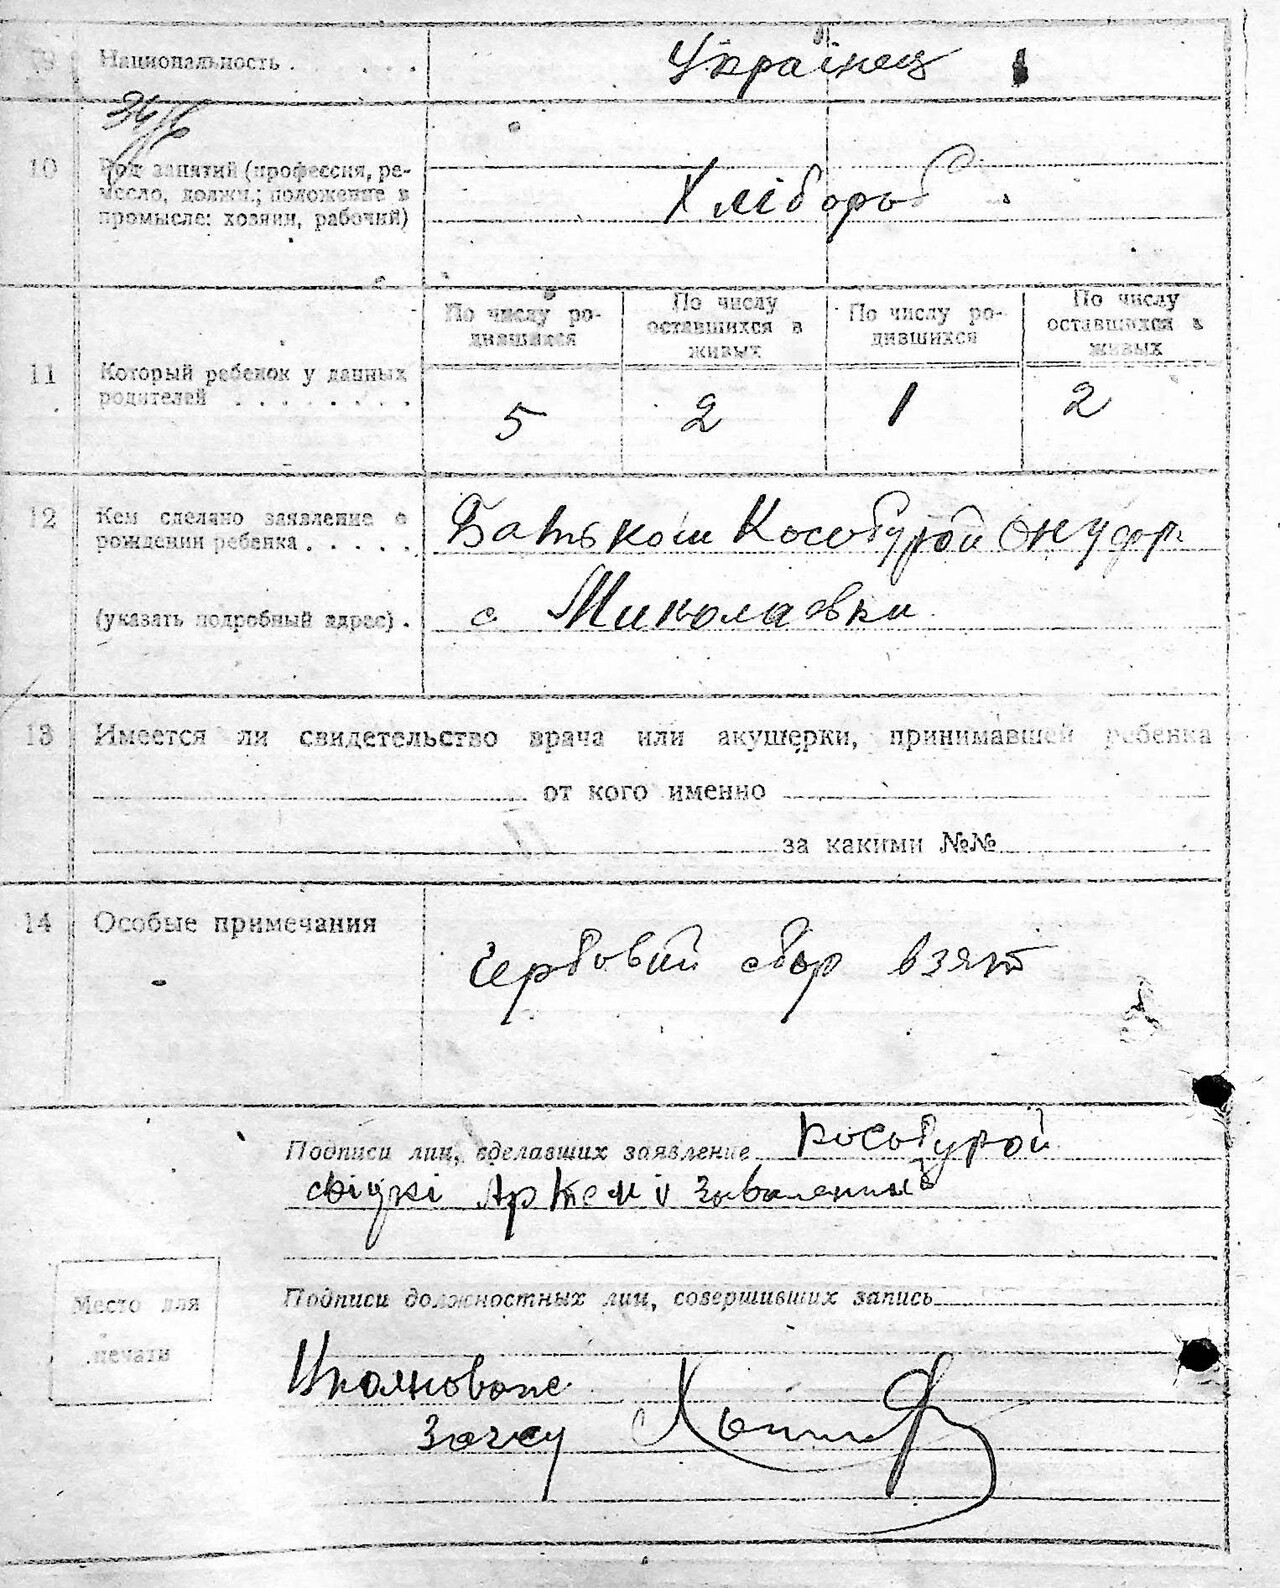 Национальность . . . . .
Українец
10
Род занятий (профессия, ре-
месло, должн.; положение в
промысле: хозяин, рабочий)
Хлібороб
11
Который ребенок у данных
родителей . . . . . . . .
По числу ро-
дившихся
По числу
оставшихся в
живых
По числу ро-
дившихся
По числу
оставшихся в
живых
5 2 1 2
12
Кем сделано заявление о
рождении ребенка . . . . .
(указать подробный адрес) .
Батьком Кособурой
с Миколаевки
13
Имеется ли свидетельство врача или акушерки, принимавшей ребенка
от кого именно
за какими №№
14
Особые примечания
сбор взят
Подписи лиц, сделавших заявление Кособурой
свідкі Артем і
Подписи должностных лиц, совершивших запись
Место для
печати
загсу